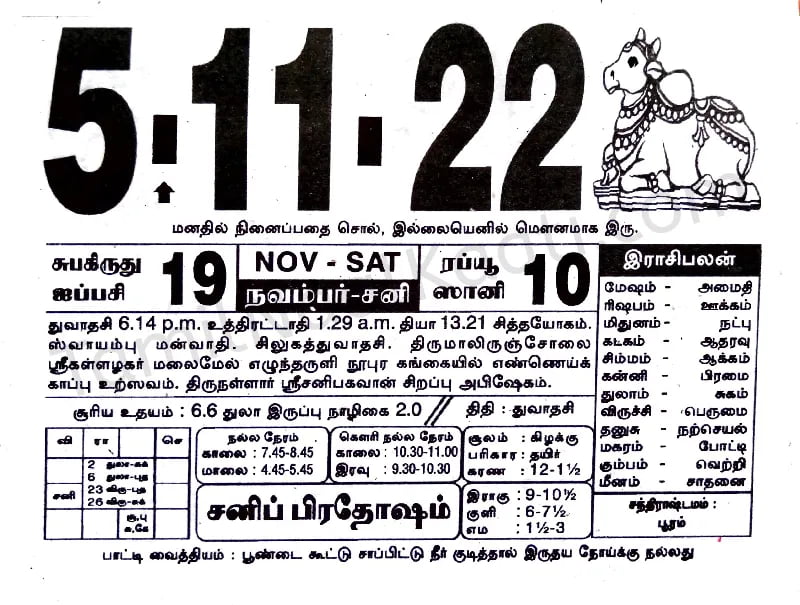 5-11-22
மனதில் நினைப்பதை சொல், இல்லையெனில் மௌனமாக இரு.
சுபகிருது
ஐப்பசி
19
NOV - SAT
நவம்பர்-சனி
ரப்யூ
ஸானி
10
துவாதசி 6.14 p.m. உத்திரட்டாதி 1.29 a.m. தியா 13.21 சித்தயோகம்.
ஸ்வாயம்பு மன்வாதி. சிலுகத்துவாதசி. திருமாலிருஞ்சோலை
ஸ்ரீகள்ளழகர் மலைமேல் எழுந்தருளி நூபுர கங்கையில் எண்ணெய்க்
காப்பு உற்ஸவம். திருநள்ளார் ஸ்ரீசனிபகவான் சிறப்பு அபிஷேகம்.
சூரிய உதயம் : 6.6 துலா இருப்பு நாழிகை 2.0 // திதி : துவாதசி
இராசிபலன்
மேஷம் - அமைதி
ரிஷபம் - ஊக்கம்
மிதுனம் - நட்பு
கடகம் - ஆதரவு
சிம்மம் - ஆக்கம்
கன்னி - பிரமை
துலாம் - சுகம்
விருச்சி - பெருமை
தனுசு - நற்செயல்
மகரம் - போட்டி
கும்பம் - வெற்றி
மீனம் - சாதனை
சந்திராஷ்டமம் :
பூரம்
வி ரா செ
2 துலா-சுக்
6 துலா-புத
சனி 23 விரு-புத
26 விரு-சுக்
சூ,பு
சு,கே
நல்ல நேரம்
காலை : 7.45-8.45
மாலை : 4.45-5.45
கௌரி நல்ல நேரம்
காலை : 10.30-11.00
இரவு : 9.30-10.30
சூலம் : கிழக்கு
பரிகார : தயிர்
கரண : 12-1½
சனிப் பிரதோஷம்
இராகு : 9-10½
குளி : 6-7½
எம : 1½-3
பாட்டி வைத்தியம் : பூண்டை கூட்டு சாப்பிட்டு நீர் குடித்தால் இருதய நோய்க்கு நல்லது